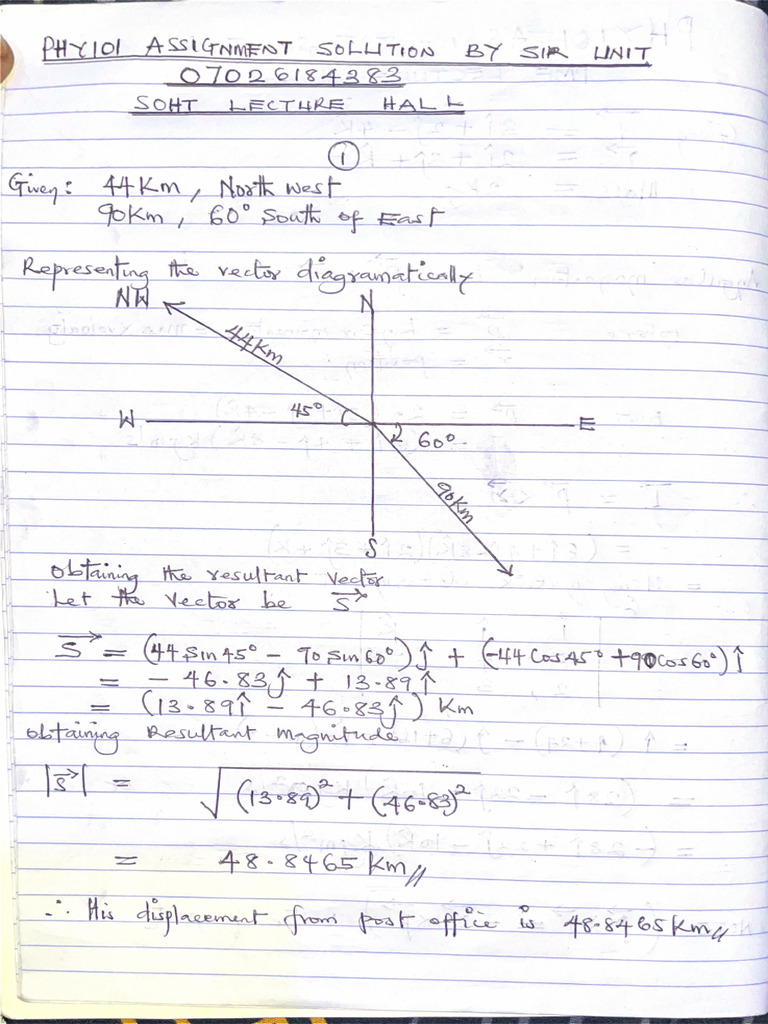 PHY101 ASSIGNMENT SOLUTION BY SIR UNIT
07026184383
SOHT LECTURE HALL
①
Given: 44Km, North West
90Km, 60° South of East
Representing the vector diagramatically
NW
N
44Km
45°
W
E
60°
90Km
S
obtaining the resultant vector
Let the vector be S→
S→ = (44 Sin 45° - 90 Sin 60°)ĵ + (-44 Cos 45° + 90 Cos 60°)î
= - 46.83ĵ + 13.89î
= (13.89î - 46.83ĵ) Km
obtaining Resultant magnitude
|S→| = √(13.89)² + (46.83)²
= 48.8465 Km//
∴ His displacement from post office is 48.8465 Km//